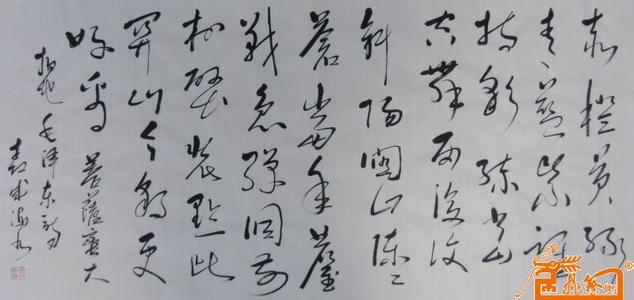 赤橙黄绿
青蓝紫谁
持彩练当
空舞雨后复
斜阳关山阵阵
苍当年鏖
战急弹洞前
村壁装点此
关山今朝更
好看 菩萨蛮大
柏地 毛泽东词